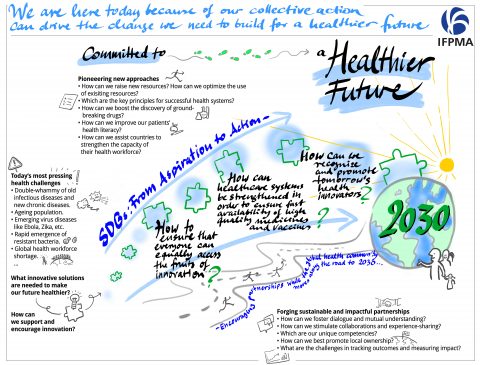 We are here today because of our collective action
Can drive the change we need to build for a healthier future
IFPMA
Committed to
a
Healthier
Future
Pioneering new approaches
• How can we raise new resources? How can we optimize the use
of exisiting resources?
• Which are the key principles for successful health systems?
• How can we boost the discovery of ground-
breaking drugs?
• How can we improve our patients'
health literacy?
• How can we assist countries to
strengthen the capacity of
their health workforce?
Today's most pressing
health challenges
• Double-whammy of old
infectious diseases and
new chronic diseases.
• Ageing population.
• Emerging virus diseases
like Ebola, Zika, etc.
• Rapid emergence of
resistant bacteria.
• Global health workforce
shortage. ...
...
What innovative solutions
are needed to make
our future healthier?
How can
we support and
encourage innovation?
SDGs: From Aspiration to Action
How to
ensure that
everyone can
equally access
the fruits of
innovation?
How can
healthcare systems
be strengthened in
order to ensure fast
availability of high
quality medicines
and vaccines
?
How can be
recognize
and promote
tomorrow's
health
innovators
?
2030
- Encouraging partnerships while the global health community
moves along the road to 2030...
Forging sustainable and impactful partnerships
• How can we foster dialogue and mutual understanding?
• How can we stimulate collaborations and experience-sharing?
• Which are our unique competencies?
• How can we best promote local ownership?
• What are the challenges in tracking outcomes and measuring impact?